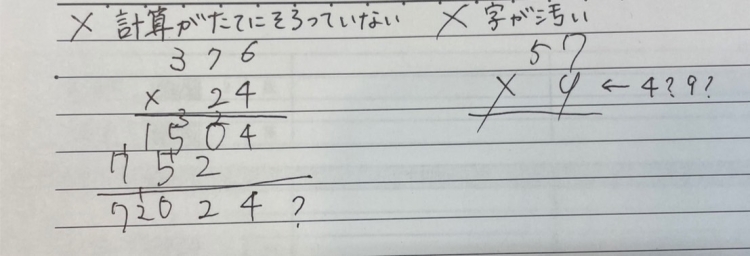 × 計算がたてにそろっていない × 字が汚い
376 57
× 24 × 4 ← 4?9?
1504
752
72024?